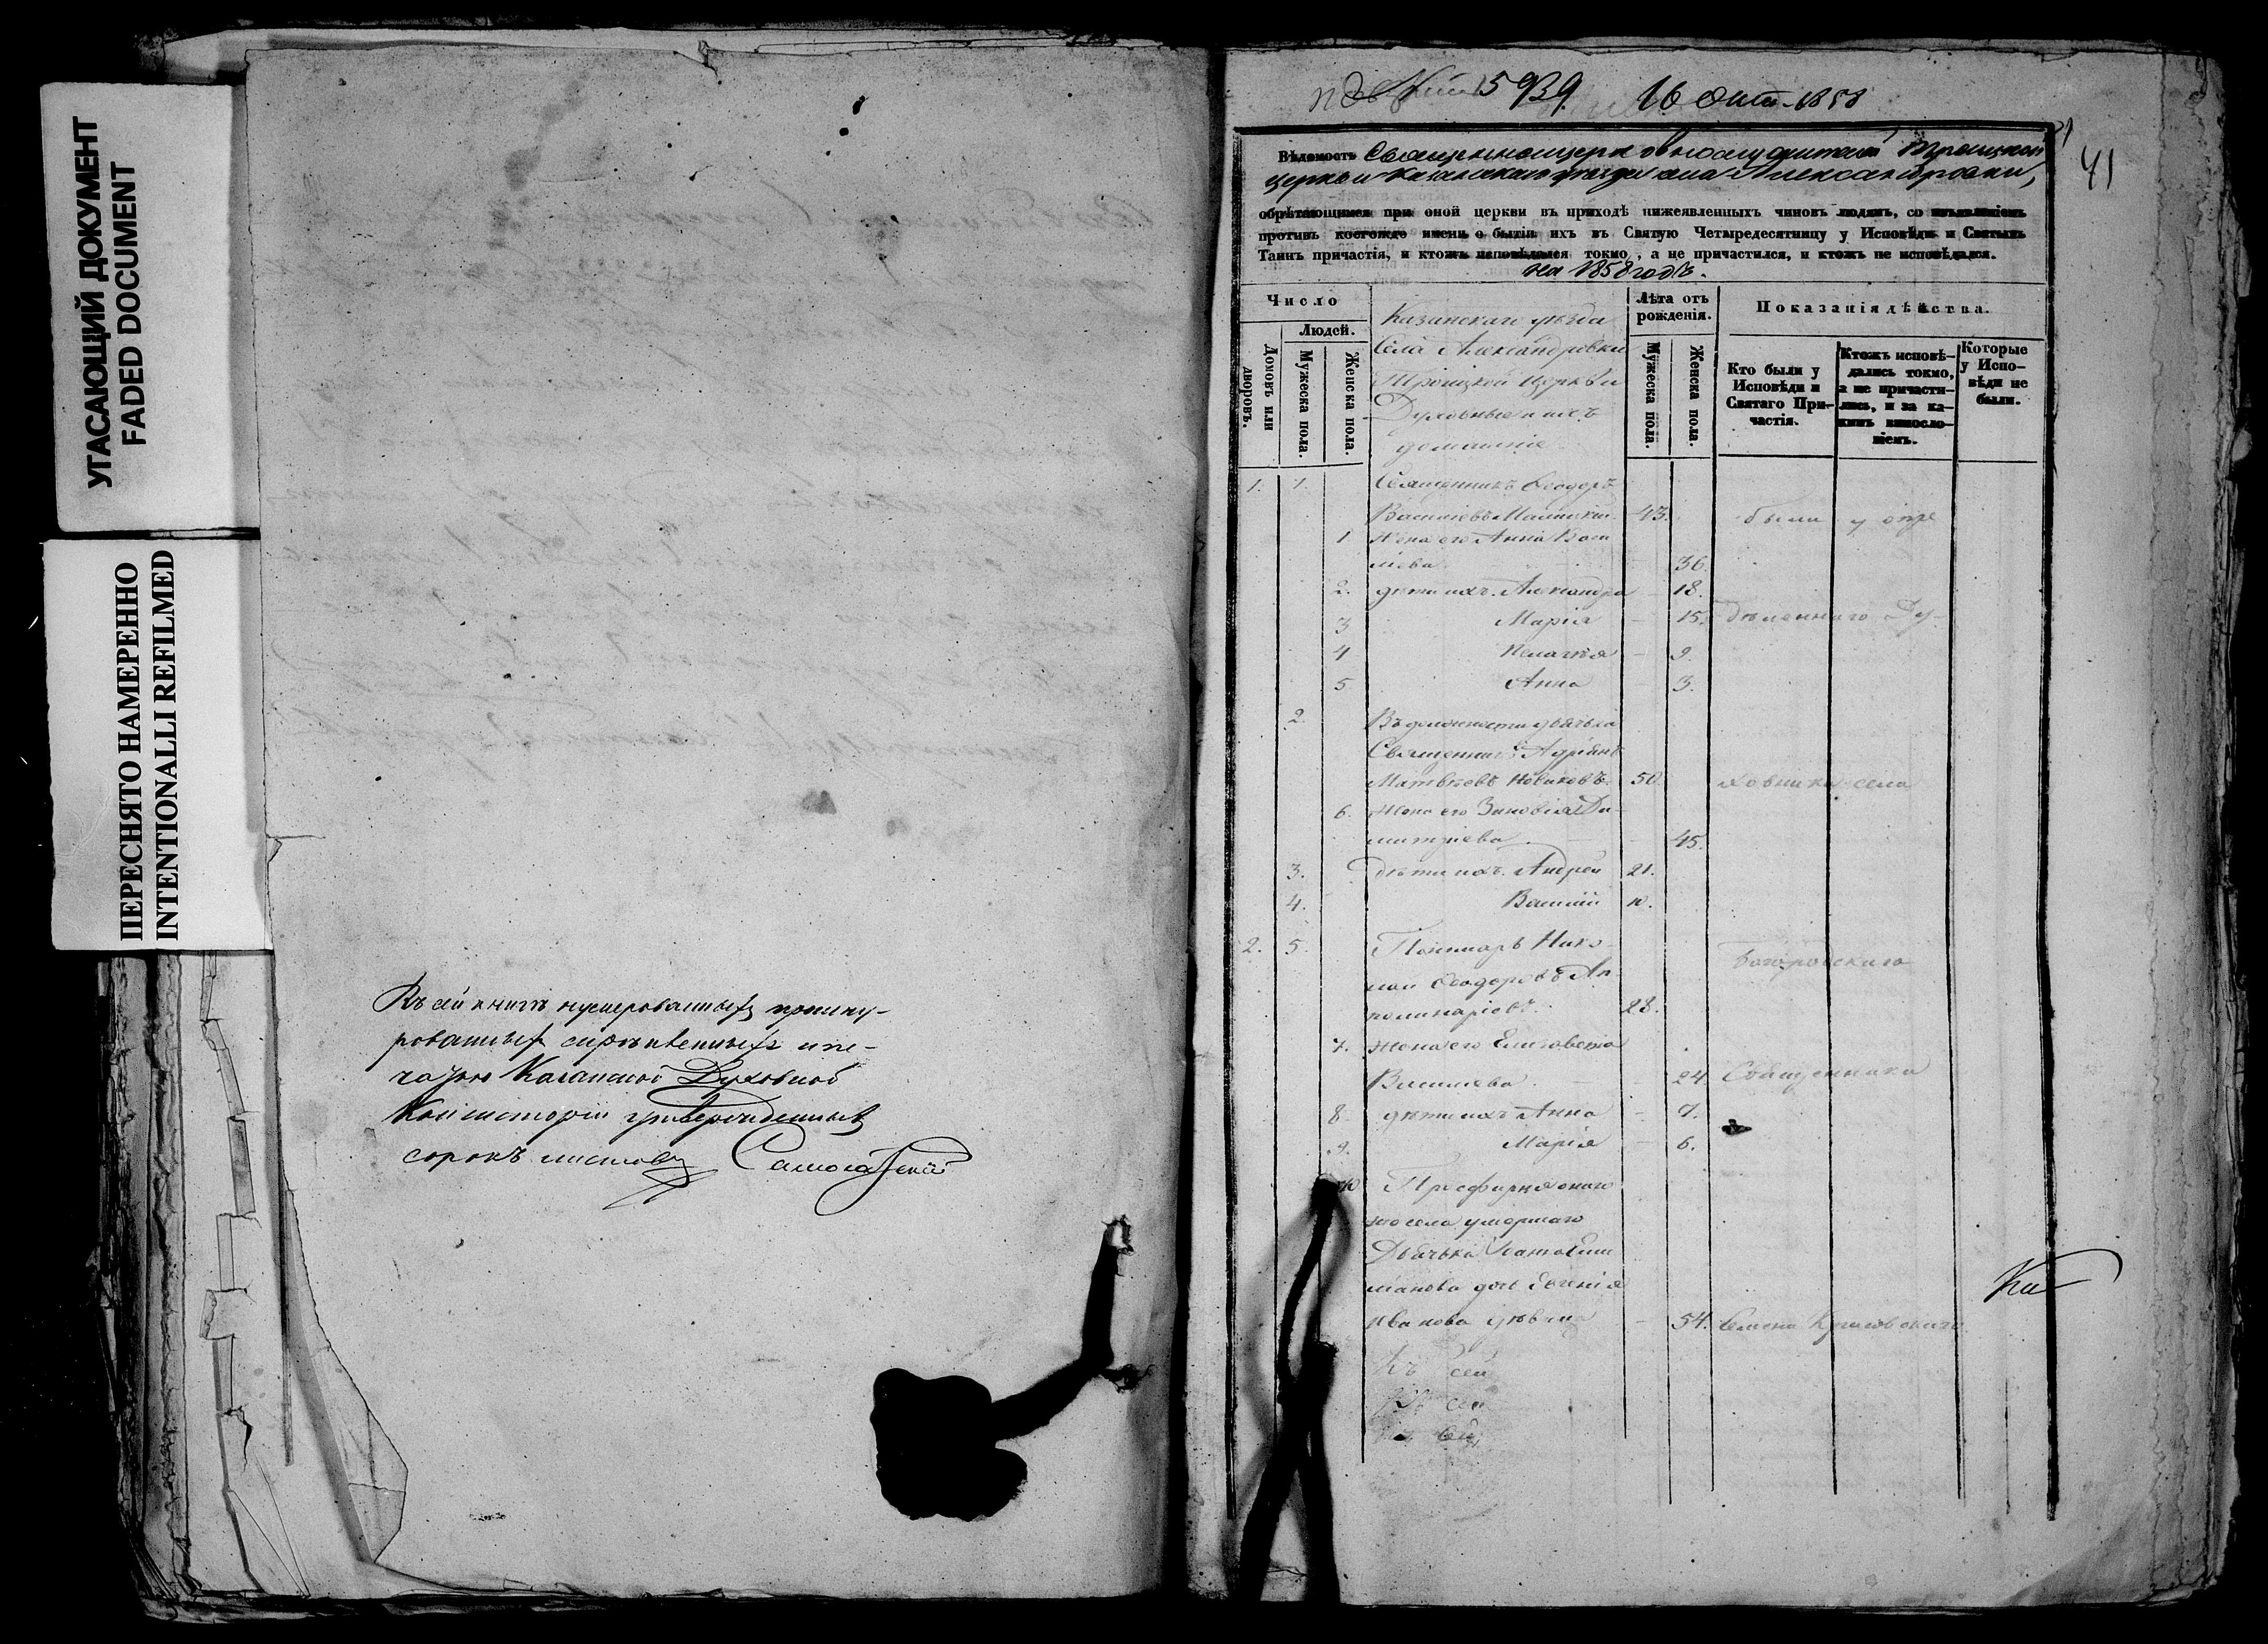 УГАСАЮЩИЙ ДОКУМЕНТ
FADED DOCUMENT
ПЕРЕСНЯТО НАМЕРЕННО
INTENTIONALLI REFILMED
Въ сей книгѣ нумерованныхъ прошну-
рованныхъ скрѣпленныхъ и пе-
чатью Казанской Духовной
Консисторіи утвержденныхъ
сорокъ листовъ
5939. 16 Окт. 1858
41
Вѣдомость Священноцерковнослужителей Троицкой
церкви Казанскаго уѣзда села Александровки,
обрѣтающимся при оной церкви въ приходѣ нижеявленныхъ чиновъ людямъ, со изъявленіемъ
противъ коегождо имени о бытіи ихъ въ Святую Четыредесятницу у Исповѣди и Святыхъ
Таинъ причастія, и ктожъ исповѣдался токмо, а не причастился, и ктожъ не исповѣдался.
на 1858 годъ.
Число
Людей.
Домовъ или дворовъ.
Мужеска пола.
Женска пола.
Казанскаго уѣзда
села Александровки
Троицкой церкви
Духовные и ихъ
домашніе
Лѣта отъ рожденія.
Мужеска пола.
Женска пола.
Показанія дѣйства.
Кто были у
Исповѣди и
Святаго При-
частія.
Ктожъ исповѣ-
дались токмо,
а не причасти-
лись, и за ка-
кимъ винесло-
віемъ.
Которые
у Испо-
вѣди не
были.
1. 1. Священникъ Ѳеодоръ
Васильевъ 43. были у
1 Жена его Анна Васи
льева 36.
2. дѣти ихъ. Александра 18.
3 Марія 15.
4 Пелагія 9.
5 Анна 3.
2. Въ должности дьячка
Священникъ Адріанъ
Матвѣевъ Новиковъ 50 ховника села
6. Жена его Зиновія Ди-
митріева 45.
3. Дѣти ихъ. Андрей 21.
4. Василій 10.
2. 5. Пономарь Нико-
лай Ѳеодоровъ Ап
полинаріевъ. 28.
7. жена его Елизавета
Васильева 24. Священника
8. дѣти ихъ Анна 7.
9. Марія 6.
10 Просфирня онаго
же села умершаго
Дьячка
дочь Евгенія
Иванова дѣвица 54. Семена
Къ сей
Къ сей
Къ сей